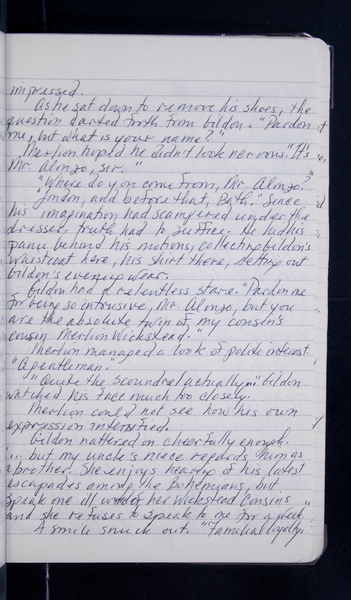 impressed.
As he sat down to remove his shoes, the
question darted forth from Gildon. "Pardon
me, but what is your name?"
Merlion hoped he didn't look nervous. "It's
Mr. Alonzo, sir."
"Where do you come from, Mr. Alonzo?"
"London, and before that, Bath." Since
his imagination had scampered under the
dresser, truth had to suffice. He hid his
panic behind his motions, collecting Gildon's
waistcoat here, his shirt there, setting out
Gildon's evening wear.
Gildon had a relentless stare. "Pardon me
for being so intrusive, Mr. Alonzo, but you
are the absolute twin of my cousin's
cousin Merlion Wickstead."
Merlion managed a look of polite interest.
"A gentleman."
"Quite the scoundrel actually..." Gildon
watched his face much too closely.
Merlion could not see how his own
expression intensified.
Gildon nattered on cheerfully enough.
"... but my uncle's niece regards him as
a brother. She enjoys hearing of his latest
escapades among the Bohemians, but
speak one ill word of her Wickstead cousins
and she refuses to speak to me for a week."
A smile snuck out. "Familial loyalty.